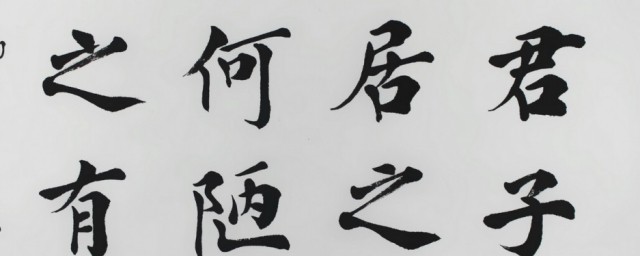 君子
居之
何陋
之有